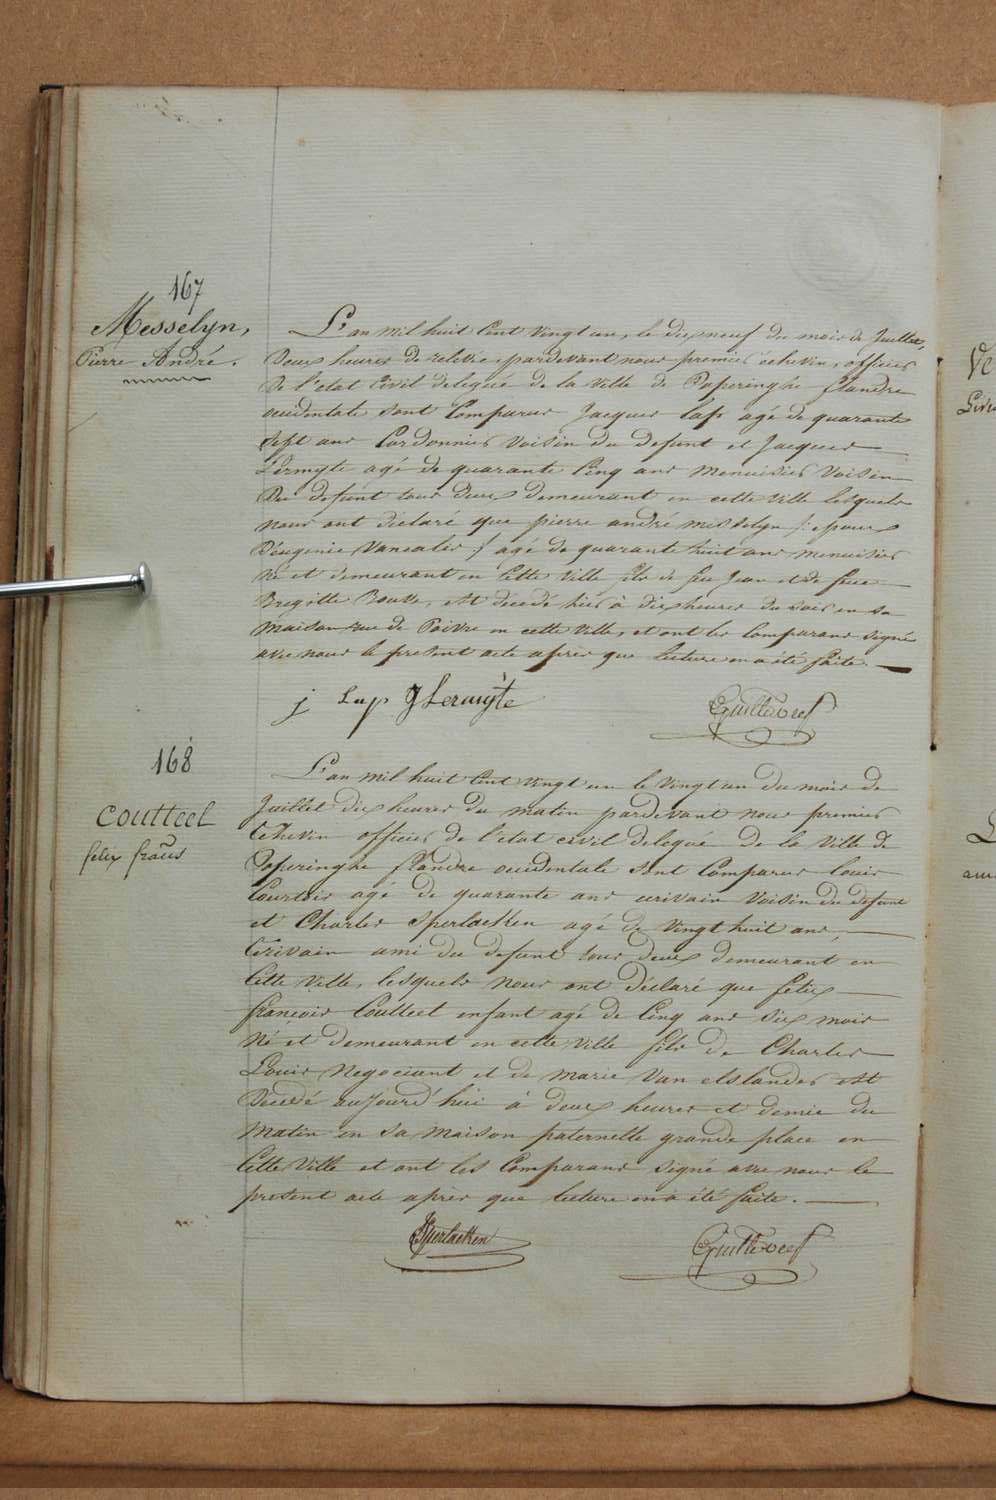 167
Messelyn,
Pierre André.
L'an mil huit Cent vingt un, le dix neuf du mois de Juillet,
Deux heures de relevée, pardevant nous premier échevin, officier
De l'etat Civil delegué de la Ville de Poperinghe flandre
occidentale sont Comparus Jacques Lap agé de quarante
Sept ans Cordonnier Voisin du defunt et Jacques
Lermyte agé de quarante Cinq ans menuisier Voisin
Du defunt tous deux demeurant en cette Ville lesquels
nous ont déclaré que pierre andré messelyn /: epoux
D'eugenie Vancalis :/ agé de quarante huit ans menuisier
Né et demeurant en Cette Ville fils de feu Jean et de feue
Bregitte Bouve, est décedé hier à dix heures du soir en sa
maison rue de Poivre en cette Ville, et ont les Comparans signé
avec nous le présent acte après que lecture en a été faite.
j Lap J Lermyte
168
Coutteel
felix fraņs
L'an mil huit Cent vingt un le Vingt un du mois de
Juillet dix heures du matin pardevant nous premier
Echevin officier de l'etat civil delegué de la Ville de
Poperinghe flandre occidentale sont Comparus louis
Courtois agé de quarante ans ecrivain Voisin du defunt
et Charles Sperlaeken agé de Vingt huit ans,
Ecrivain ami du defunt tous deux demeurant en
Cette Ville, lesquels nous ont Déclaré que felix
françois Coutteel enfant agé de Cinq ans Six mois
Né et demeurant en cette Ville fils de Charles
Louis Negociant et de marie Van elslander est
Decedé aujourd'hui à deux heures et demie du
Matin en sa maison paternelle grande place en
Cette Ville et ont les Comparans signé avec nous le
présent acte après que lecture en a été faite.
Sperlaeken